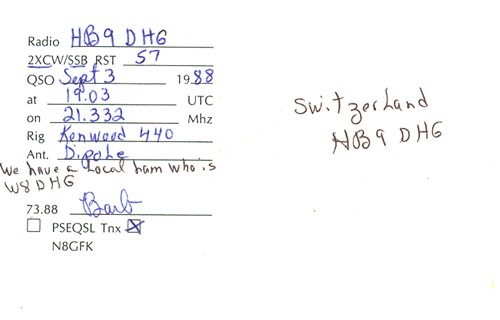 Radio HB9DHG
2XCW/SSB RST 57
QSO Sept 3 1988
at 19.03 UTC
on 21.332 Mhz
Rig Kenwood 440
Ant. Dipole
We have a local ham who is
W8DHG
73.88 Barb
PSEQSL Tnx
N8GFK
Switzerland
HB9DHG